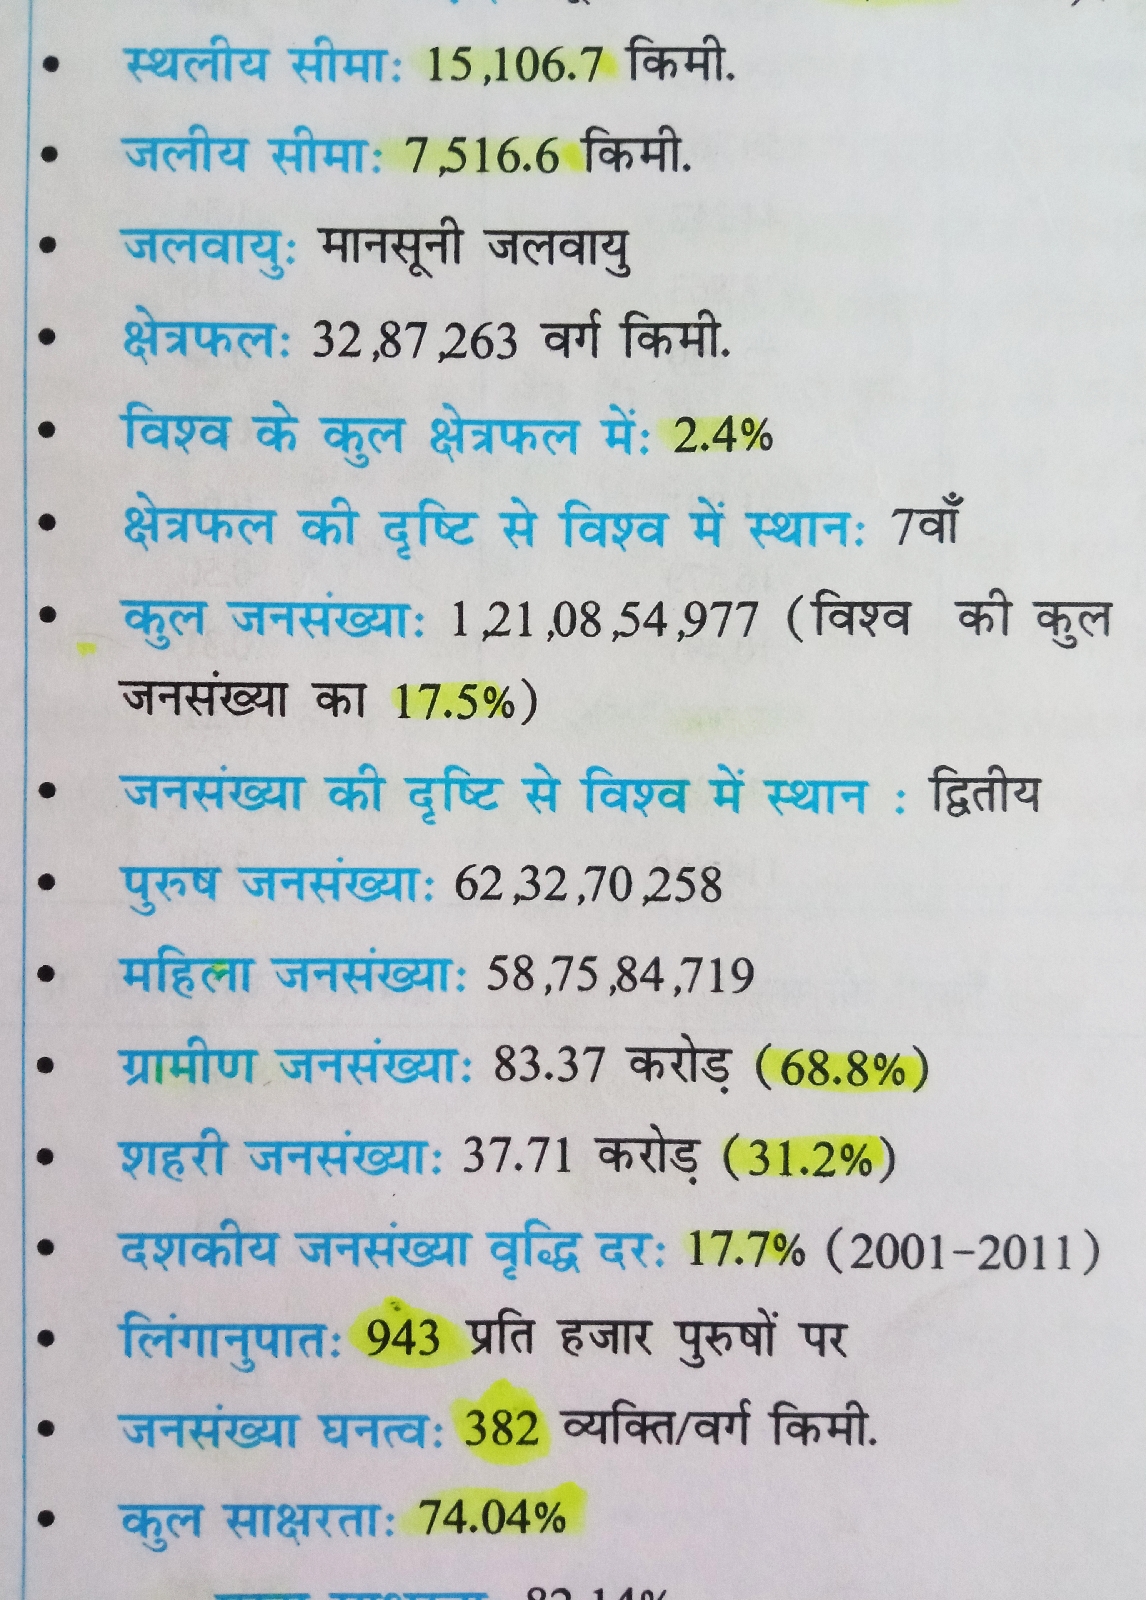 • स्थलीय सीमा: 15,106.7 किमी.
• जलीय सीमा: 7,516.6 किमी.
• जलवायु: मानसूनी जलवायु
• क्षेत्रफल: 32,87,263 वर्ग किमी.
• विश्व के कुल क्षेत्रफल में: 2.4%
• क्षेत्रफल की दृष्टि से विश्व में स्थान: 7वाँ
• कुल जनसंख्या: 1,21,08,54,977 (विश्व की कुल
जनसंख्या का 17.5%)
• जनसंख्या की दृष्टि से विश्व में स्थान : द्वितीय
• पुरुष जनसंख्या: 62,32,70,258
• महिला जनसंख्या: 58,75,84,719
• ग्रामीण जनसंख्या: 83.37 करोड़ (68.8%)
• शहरी जनसंख्या: 37.71 करोड़ (31.2%)
• दशकीय जनसंख्या वृद्धि दर: 17.7% (2001-2011)
• लिंगानुपात: 943 प्रति हजार पुरुषों पर
• जनसंख्या घनत्व: 382 व्यक्ति/वर्ग किमी.
• कुल साक्षरता: 74.04%